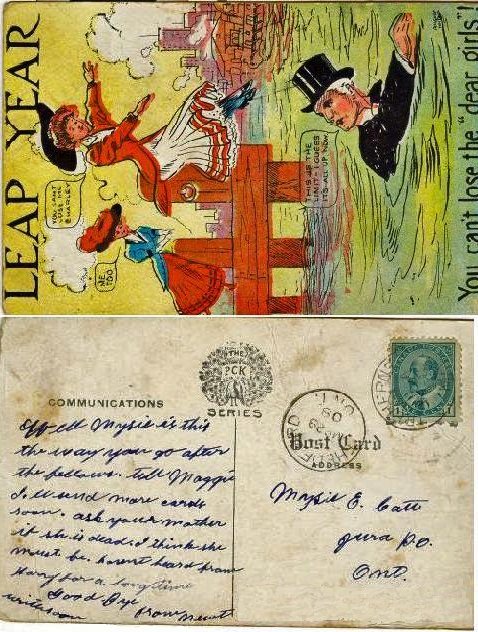 LEAP YEAR
YOU CAN'T
LOSE ME
CHARLEY
ME
TOO
THIS IS THE
LIMIT - I GUESS
IT'S ALL UP NOW
You can't lose the "dear girls"!
THE
PCK
SERIES
COMMUNICATIONS
Post Card
ADDRESS
ONT.
09
1 1
Mysie is this
the way you go after
the fellows. tell Maggie
I'll send more cards
soon. ask your mother
if she is dead. I think she
must be. havent heard from
for a long time
Good Bye
write soon from
Mysie E. Catt
Jura P.O.
Ont.